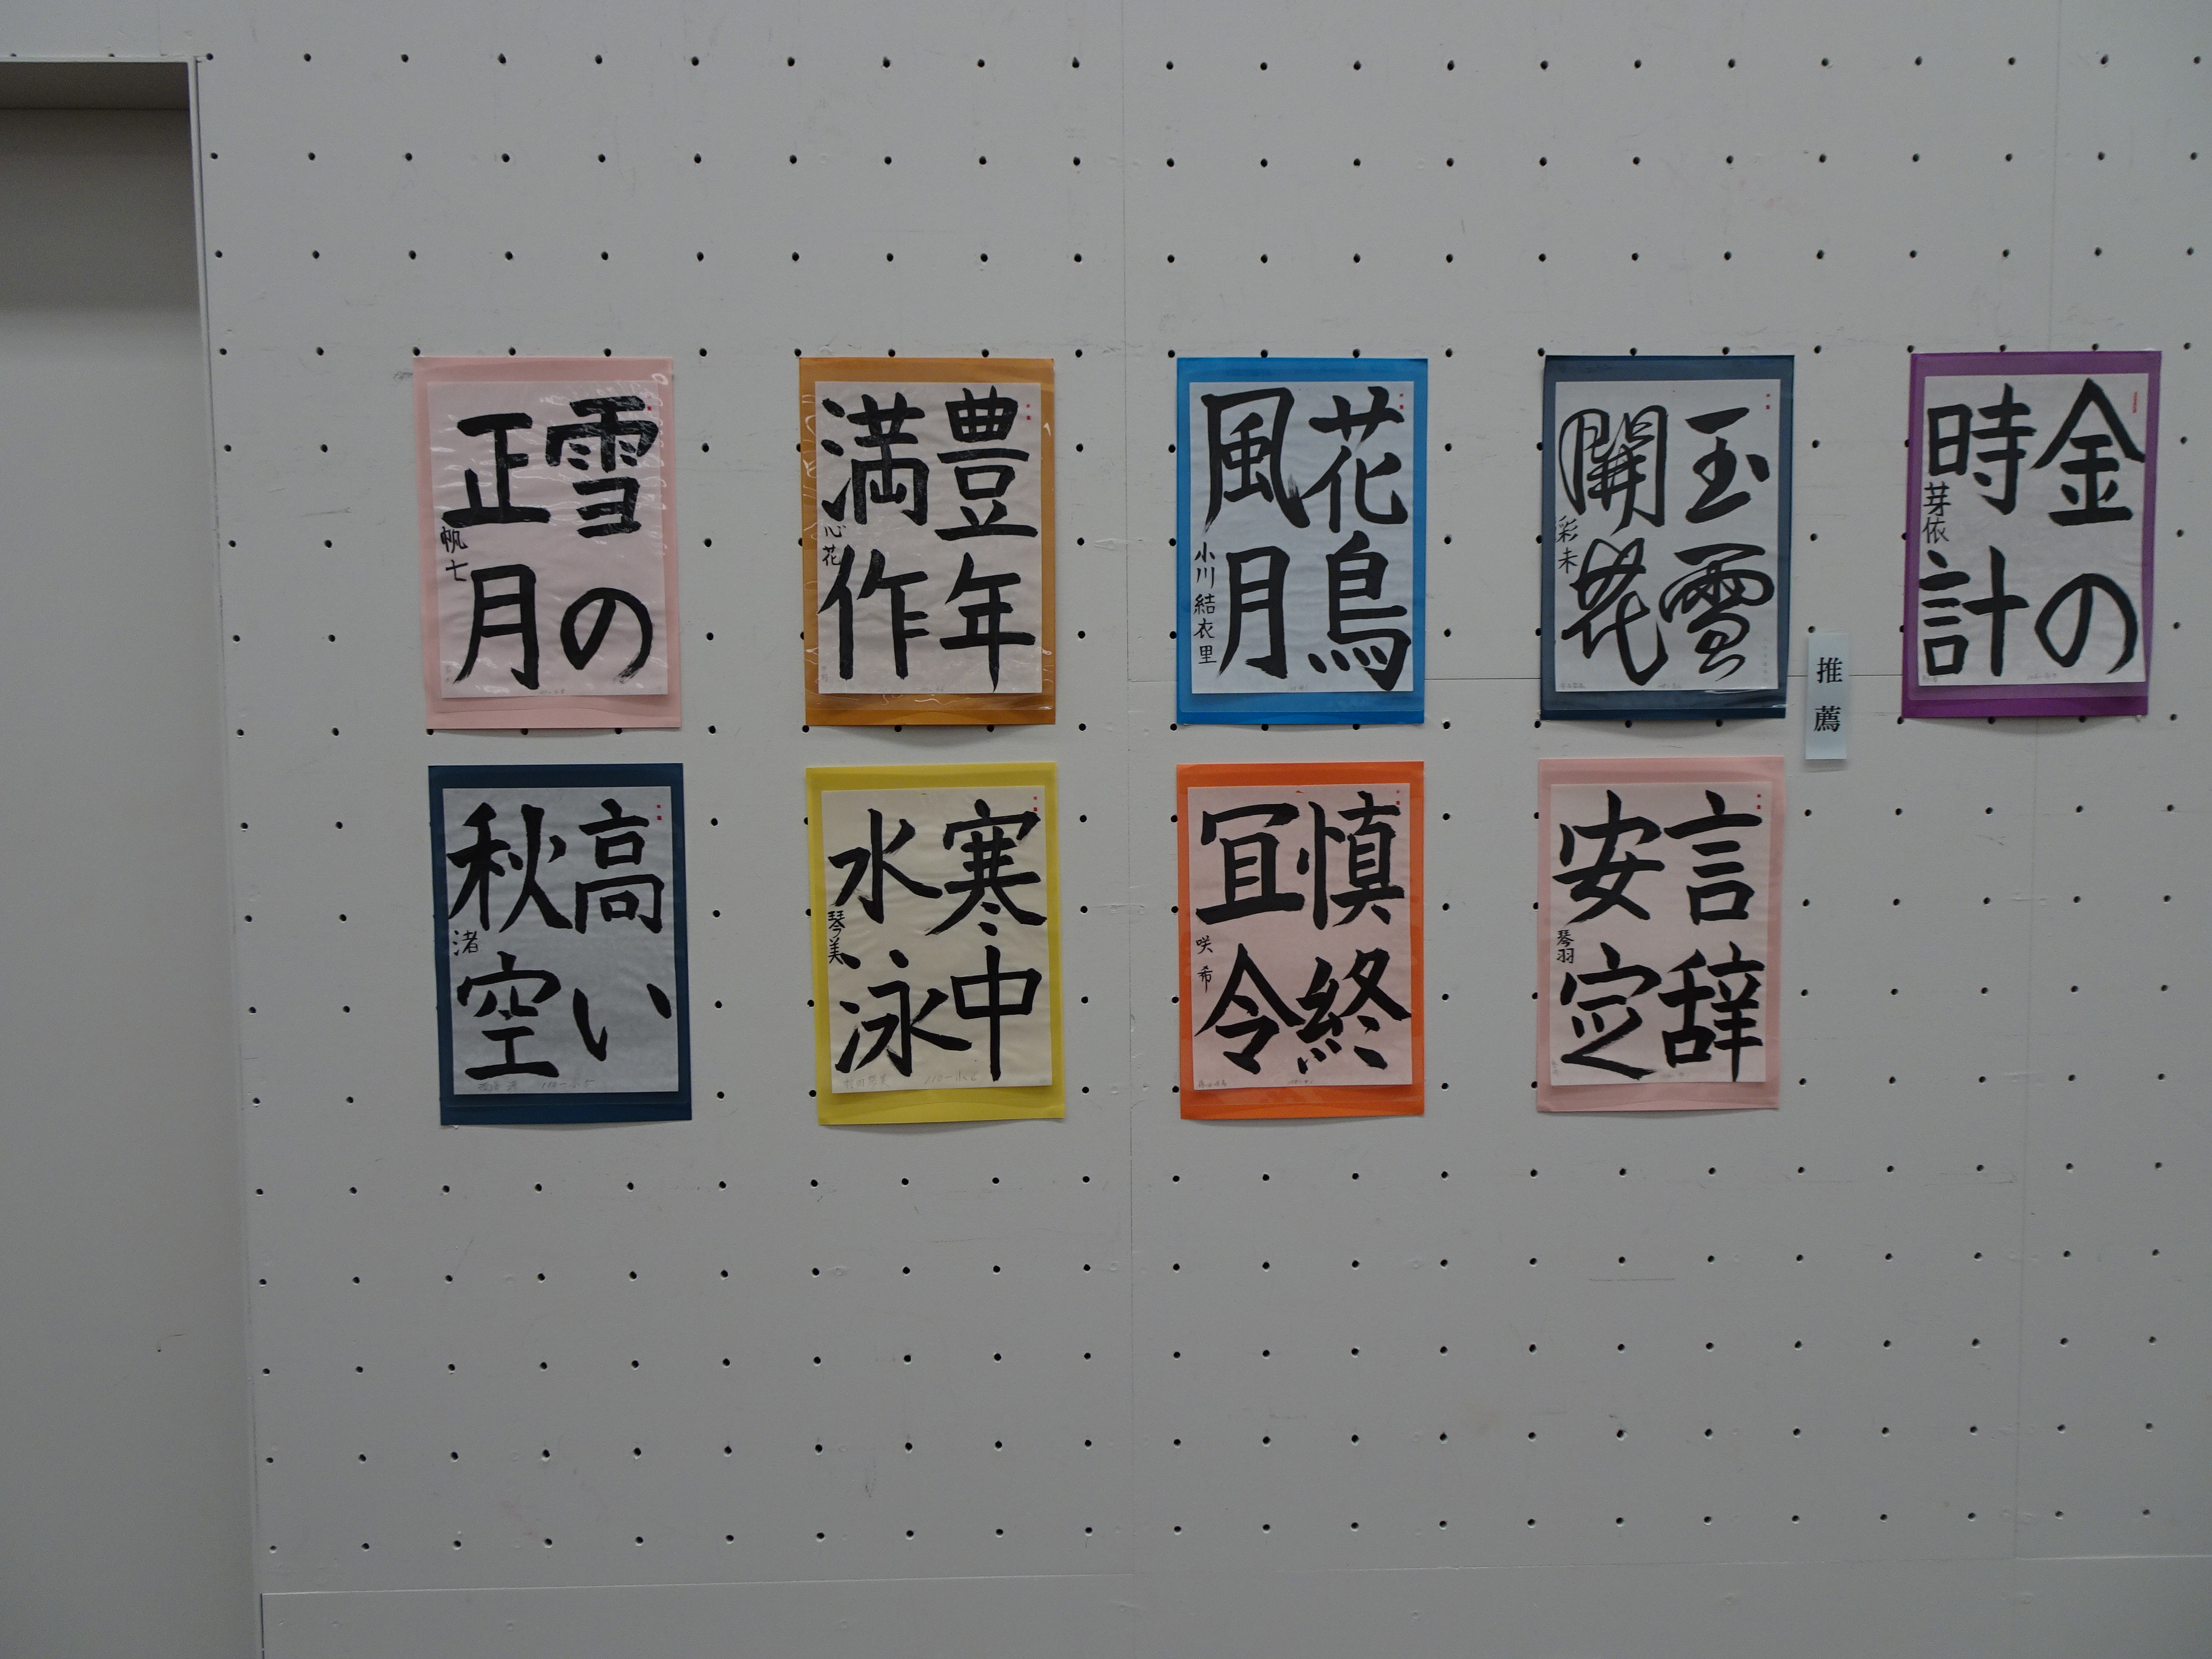 金の
時計
芽依
推薦
玉雪
開花
彩未
花鳥
風月
小川結衣里
豊年
満作
心花
雪の
正月
帆七
言辞
安定
琴羽
慎終
冝令
咲希
寒中
水泳
琴美
高い
秋空
渚